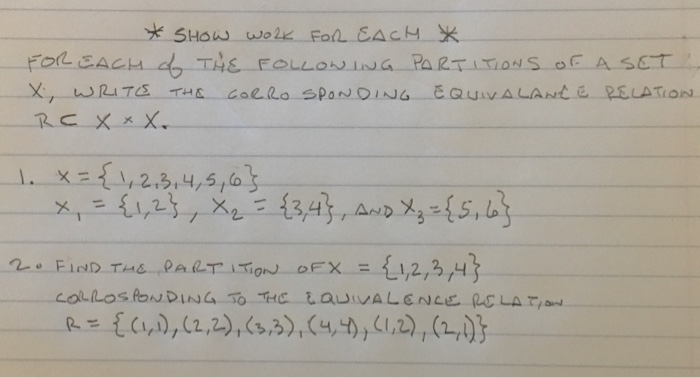 * SHOW WORK FOR EACH *
FOR EACH of THE FOLLOWING PARTITIONS OF A SET
X, WRITE THE CORRO SPONDING EQUIVALANCE RELATION
R ⊂ X × X.
1. X = {1,2,3,4,5,6}
X₁ = {1,2}, X₂ = {3,4}, AND X₃ = {5,6}
2. FIND THE PARTITION OF X = {1,2,3,4}
CORROSPONDING TO THE EQUIVALENCE RELATION
R = {(1,1),(2,2),(3,3),(4,4),(1,2),(2,1)}